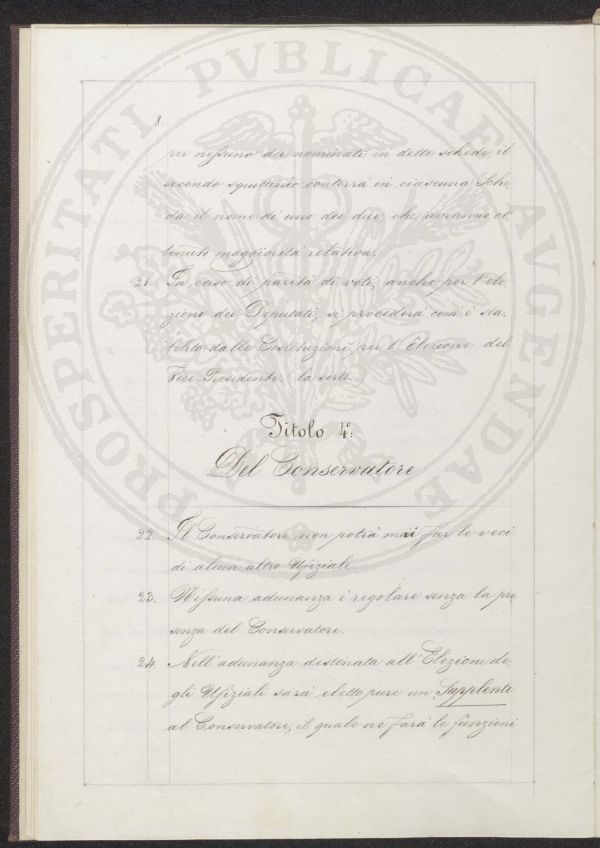 PROSPERITATI PVBLICAE AVGENDAE
8.
per nessuno dei nominati in dette schede, il
secondo squittinio conterrà in ciascuna Sche-
da il nome di uno dei due, che avranno ot-
tenuto maggiorità relativa.
21. In caso di parità di voti, anche per l'ele-
zione dei Deputati, si procederà com'è sta-
bilito dalle Costituzioni per l'Elezione del
Vice-Presidente, la sorte.
Titolo 4°:
Del Conservatore
22. Il Conservatore non potrà mai far le veci
di alcun altro Ufiziale.
23. Nessuna adunanza è regolare senza la pre
senza del Conservatore.
24. Nell'adunanza destinata all'Elezione de-
gli Ufiziali sarà eletto pure un Supplente
al Conservatore, il quale ne farà le funzioni